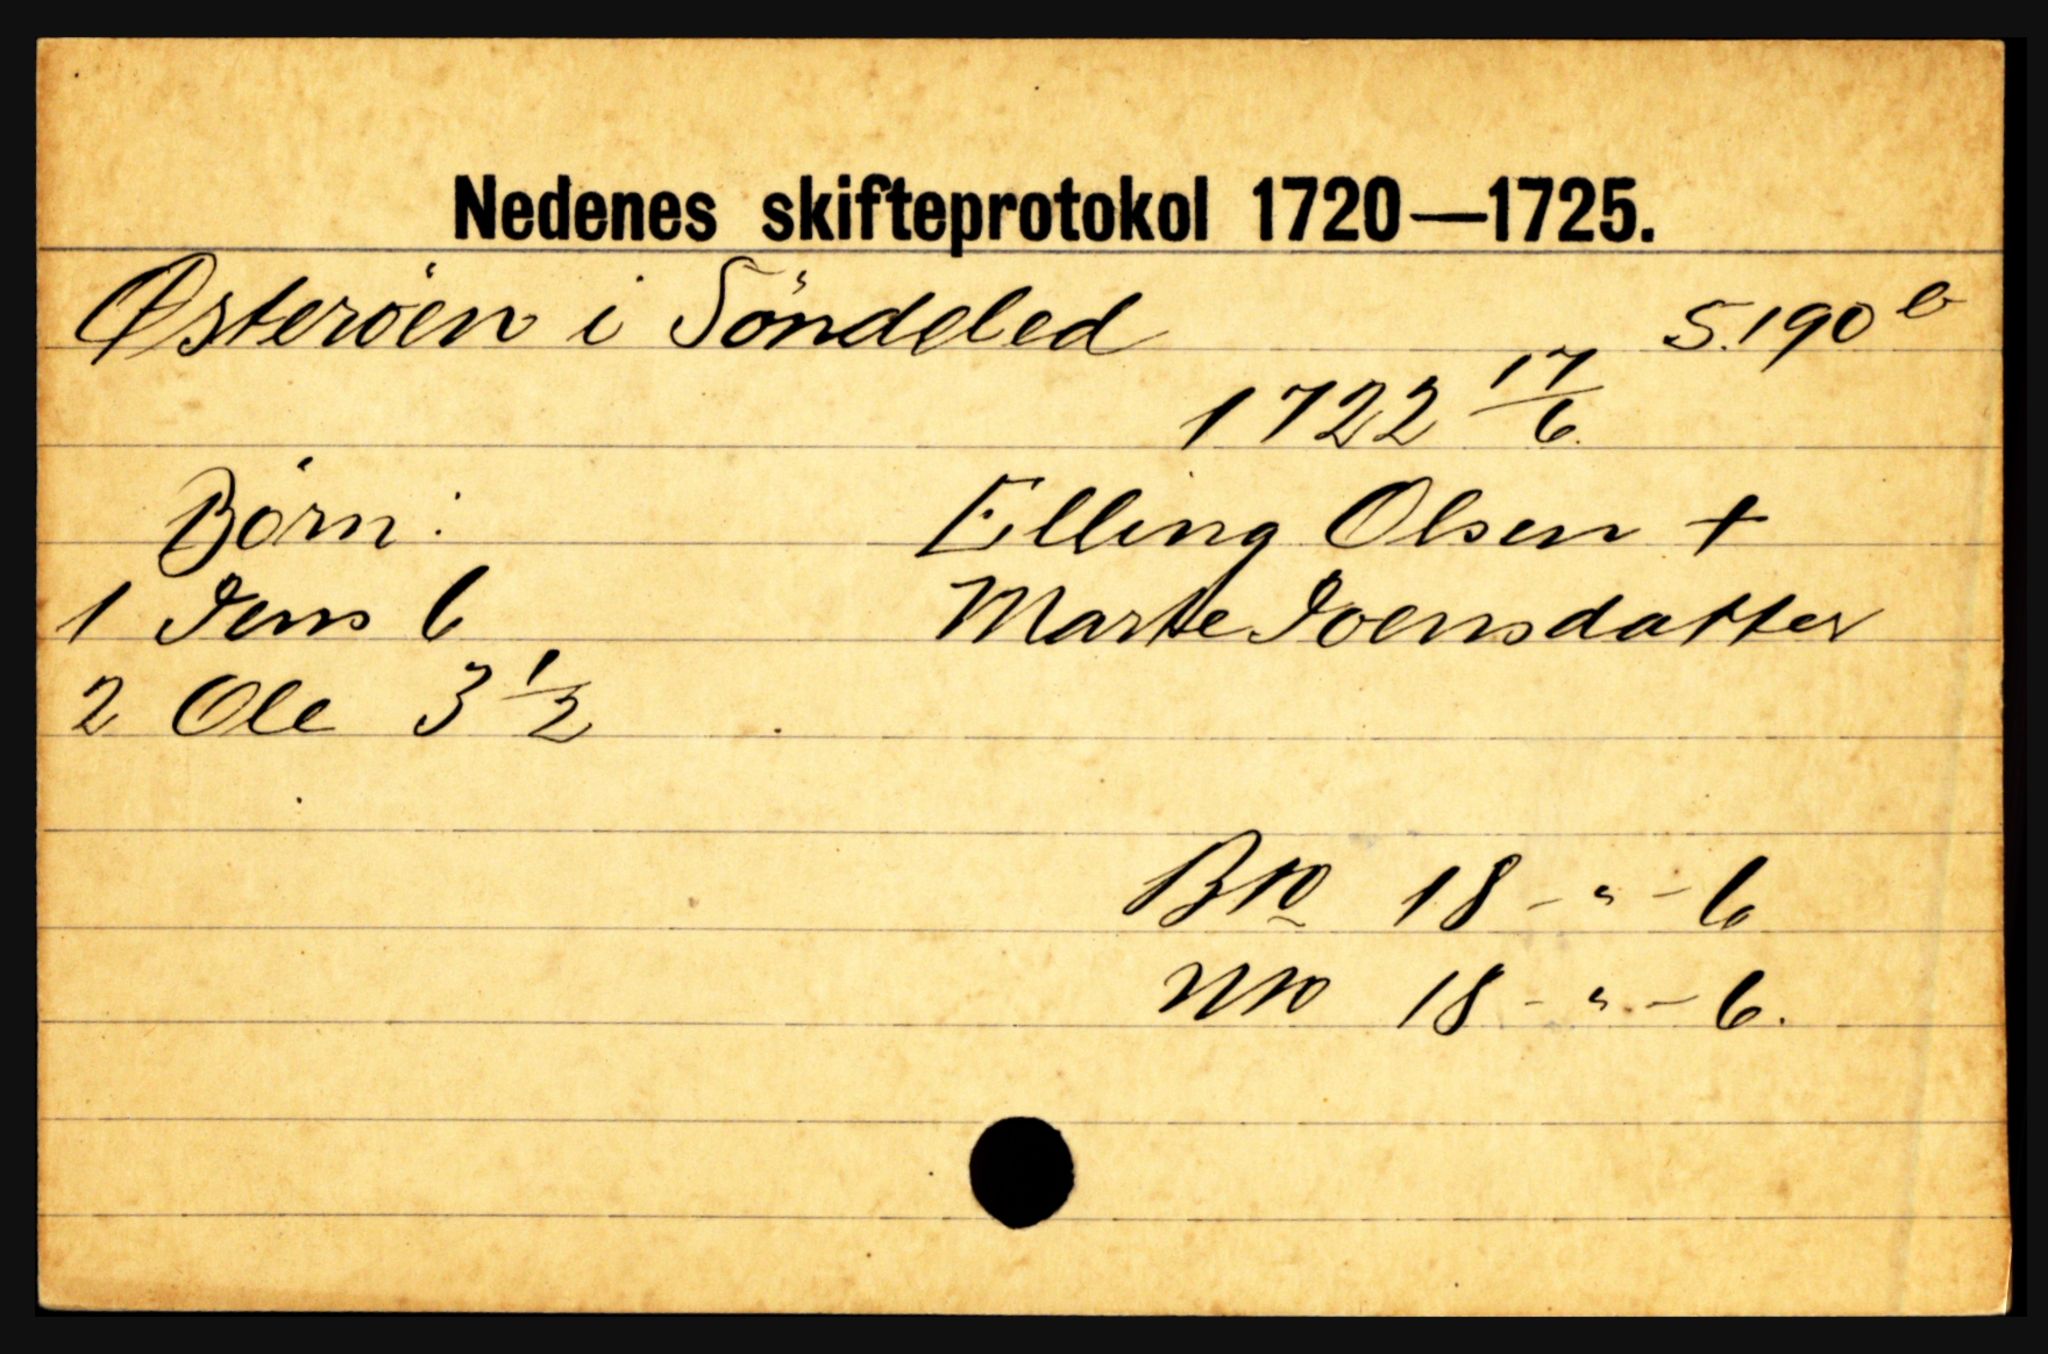 Nedenes skifteprotokol 1720—1725.
Østerøen i Söndeled S. 190 b
1722 17/6
Børn: Elling Olsen +
1 Jens 6 Marte Joensdatter
2 Ole 3 1/2
Bto 18 - " - 6
Nto 18 - " - 6.